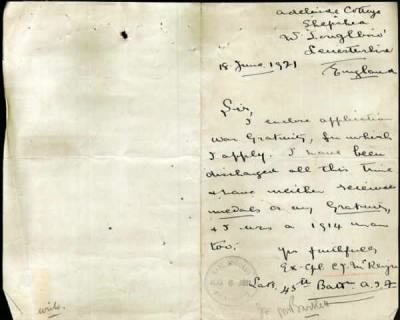 Adelaide Cottage
Shepshed
Nr Loughboro'
Leicestershire
England
18 June 1921
Sir,
I enclose application
War Gratuity, for which
I apply. I have been
discharged all this time
& have neither received
medals or my Gratuity,
& I was a 1914 man
too.
Yrs faithfully
Ex-Cpl C J
Late 45th Battn A.I.F